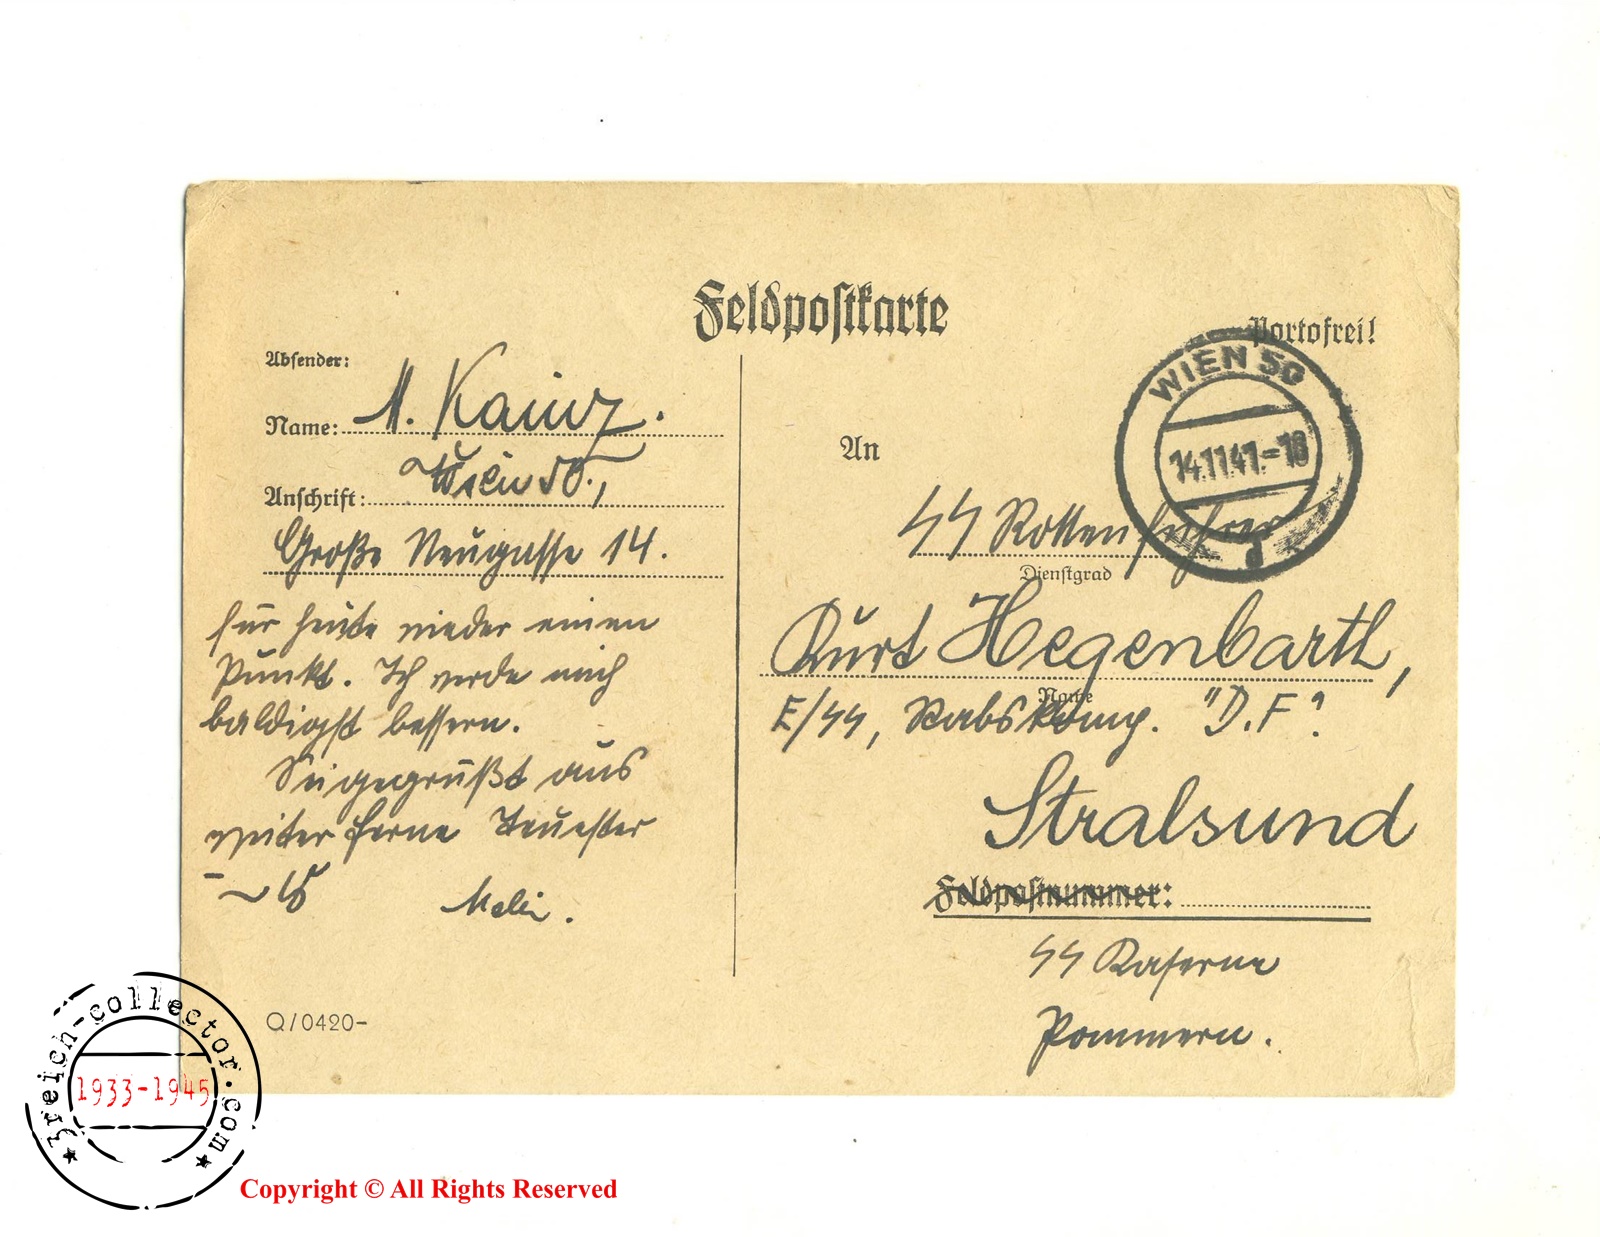 Feldpostkarte
Portofrei!
Absender:
Name: M. Kainz.
Anschrift: Wien 50.,
Große Neugasse 14.
für heute wieder einen
Punkt. Ich werde mich
baldigst bessern.
Sei gegrüßt aus
weiter Ferne Teuerster
Meli.
Q/0420-
WIEN 50
14.11.41.-18
d
An
SS Rottenführer
Dienstgrad
Kurt Hegenbarth,
Name
E/SS, Stabskomp. "D.F".
Stralsund
Feldpostnummer:
SS Kaserne
Pommern.
3reich-collector.com
1933-1945
Copyright © All Rights Reserved